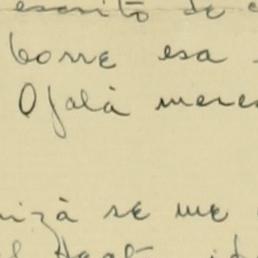 escrito de
borre esa
Ojalà merec
nizà se me